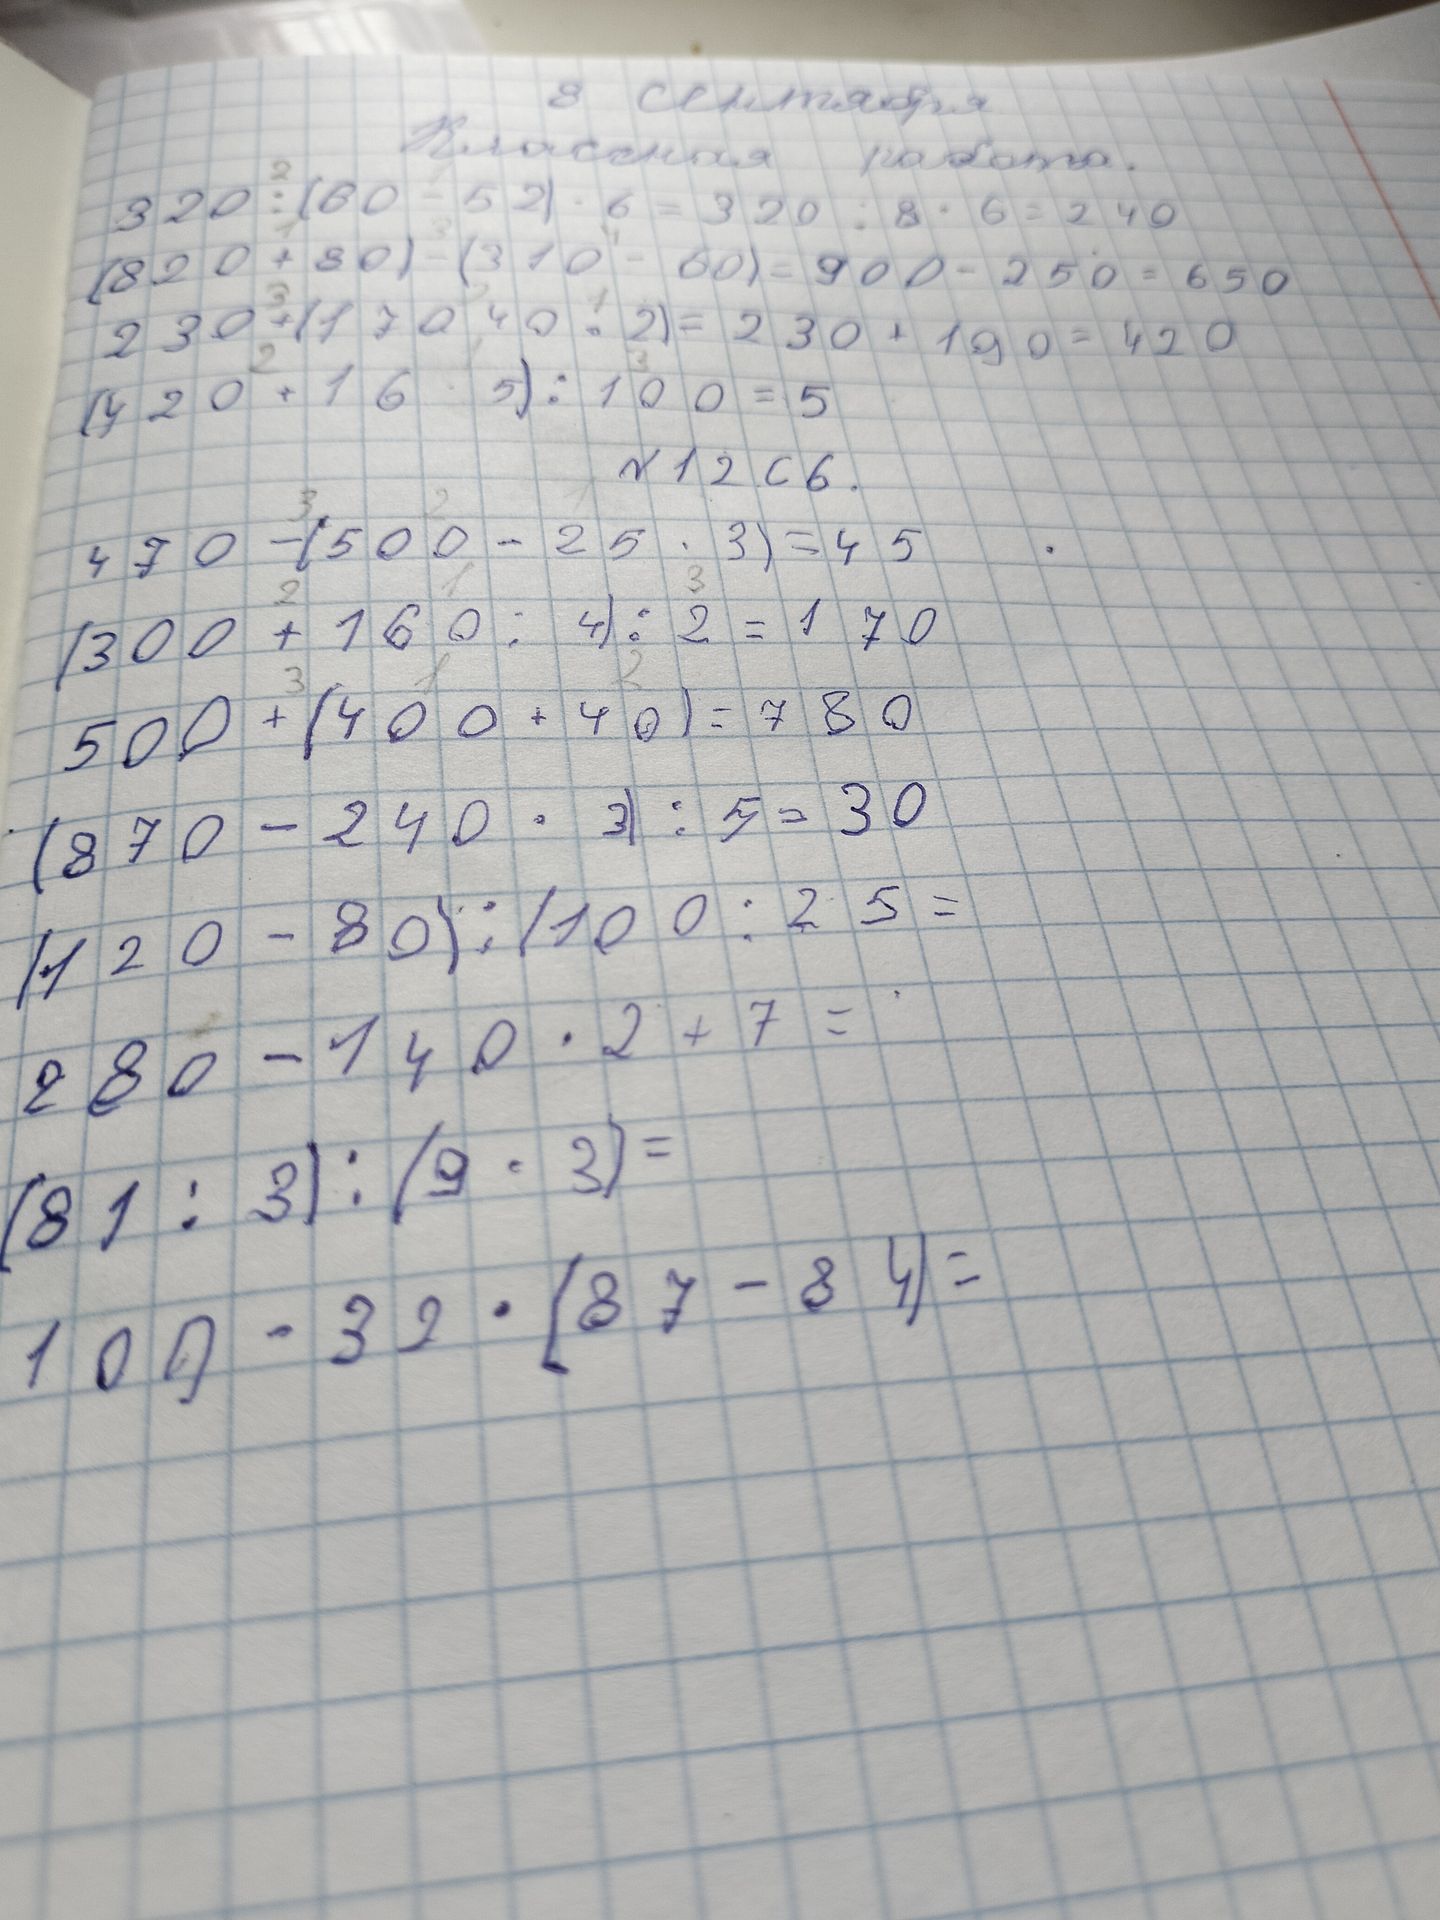 8 сентября
Классная работа.
320 : (60 - 52) · 6 = 320 : 8 · 6 = 240
(820 + 80) - (310 - 60) = 900 - 250 = 650
230 + (170 40 : 2) = 230 + 190 = 420
(420 + 16 · 5) : 100 = 5
№ 12 С 6.
470 - (500 - 25 · 3) = 45
(300 + 160 : 4) : 2 = 170
500 + (400 + 40) = 780
(870 - 240 · 3) : 5 = 30
(120 - 80) : (100 : 25 =
280 - 140 · 2 + 7 =
(81 : 3) : (9 · 3) =
100 - 32 · (87 - 84) =